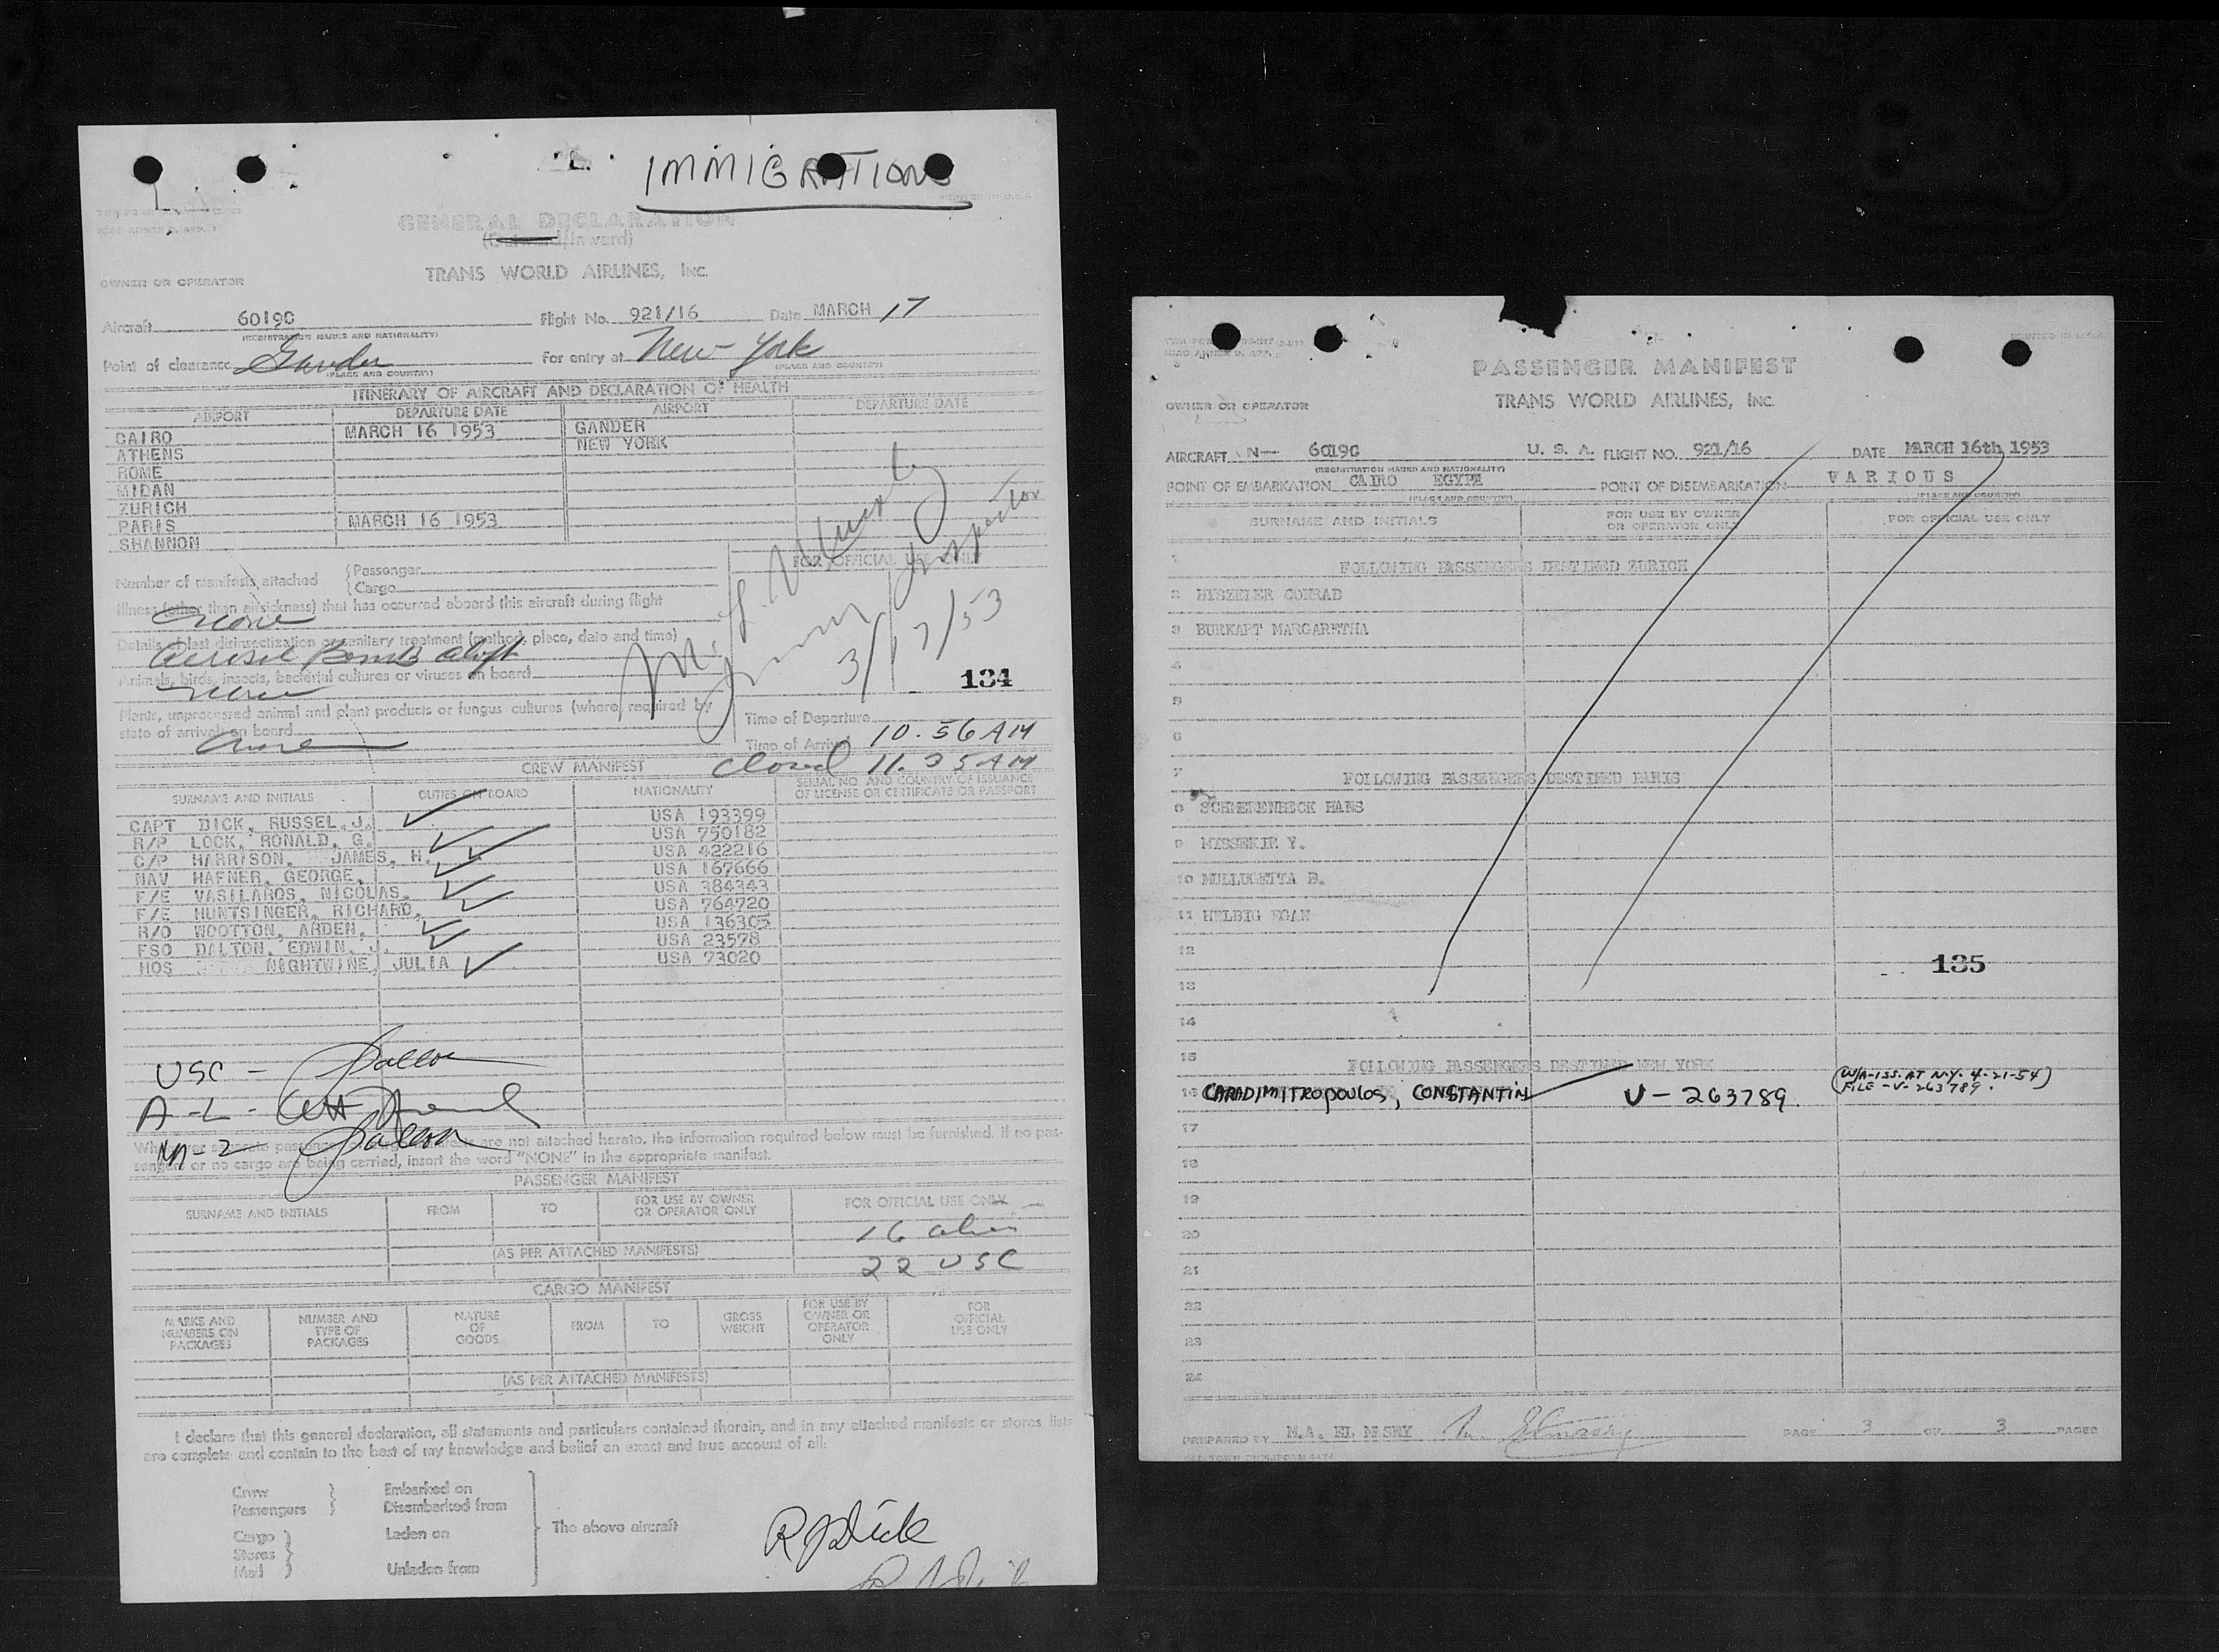 IMMIGRATIONS
PRINTED IN U.S.A.
TWA FORM
GENERAL DECLARATION
(Outward/Inward)
TRANS WORLD AIRLINES, INC.
OWNER OR OPERATOR
Aircraft 6019C Flight No. 921/16 Date MARCH 17
(REGISTRATION MARKS AND NATIONALITY)
Point of clearance Gander For entry at New York
(PLACE AND COUNTRY) (PLACE AND COUNTRY)
ITINERARY OF AIRCRAFT AND DECLARATION OF HEALTH
AIRPORT DEPARTURE DATE AIRPORT DEPARTURE DATE
CAIRO MARCH 16 1953 GANDER
ATHENS NEW YORK
ROME
MIDAN
ZURICH
PARIS MARCH 16 1953
SHANNON
Number of manifests attached { Passenger
Cargo
FOR OFFICIAL USE ONLY
Inspector
3/17/53
Illness (other than airsickness) that has occurred aboard this aircraft during flight
None
Details of last disinsectization or sanitary treatment (method, place, date and time)
Aerosol Bomb aloft
Animals, birds, insects, bacterial cultures or viruses on board
None
134
Plants, unprocessed animal and plant products or fungus cultures (where required by
state of arrival) on board
None
Time of Departure
Time of Arrival 10.56 AM
Closed 11.35 AM
CREW MANIFEST
SURNAME AND INITIALS DUTIES ON BOARD NATIONALITY SERIAL NO. AND COUNTRY OF ISSUANCE
OF LICENSE OR CERTIFICATE OR PASSPORT
CAPT DICK, RUSSEL.J. USA 193399
R/P LOCK, RONALD, G. USA 750182
C/P HARRISON, JAMES, H. USA 422216
NAV HAFNER, GEORGE, USA 167666
F/E VASILAROS, NICOLAS, USA 384343
F/E HUNTSINGER, RICHARD, USA 764720
R/O WOOTTON, ARDEN, USA 136305
FSO DALTON, EDWIN, J. USA 23578
HOS NIGHTWINE, JULIA USA 73020
USC -
A-L-
are not attached hereto, the information required below must be furnished. If no pas-
sengers or no cargo are being carried, insert the word "NONE" in the appropriate manifest.
PASSENGER MANIFEST
SURNAME AND INITIALS FROM TO FOR USE BY OWNER
OR OPERATOR ONLY FOR OFFICIAL USE ONLY
16 alien
(AS PER ATTACHED MANIFESTS)
22 USC
CARGO MANIFEST
MARKS AND
NUMBERS ON
PACKAGES NUMBER AND
TYPE OF
PACKAGES NATURE
OF
GOODS FROM TO GROSS
WEIGHT FOR USE BY
OWNER OR
OPERATOR
ONLY FOR
OFFICIAL
USE ONLY
(AS PER ATTACHED MANIFESTS)
I declare that this general declaration, all statements and particulars contained therein, and in any attached manifests or stores lists
are complete and contain to the best of my knowledge and belief an exact and true account of all:
Crew Embarked on
Passengers Disembarked from
Cargo Laden on The above aircraft
Stores
Mail Unladen from
RJDick
PRINTED IN U.S.A.
PASSENGER MANIFEST
OWNER OR OPERATOR TRANS WORLD AIRLINES, INC.
AIRCRAFT N— 6019C U. S. A. FLIGHT NO. 921/16 DATE MARCH 16th 1953
(REGISTRATION MARKS AND NATIONALITY)
POINT OF EMBARKATION CAIRO EGYPT POINT OF DISEMBARKATION VARIOUS
(PLACE AND COUNTRY) (PLACE AND COUNTRY)
SURNAME AND INITIALS FOR USE BY OWNER
OR OPERATOR ONLY FOR OFFICIAL USE ONLY
1 FOLLOWING PASSENGERS DESTINED ZURICH
2 WYSZELER CONRAD
3 BURKART MARGARETHA
4
5
6
7 FOLLOWING PASSENGERS DESTINED PARIS
8 SCHMERENBECK HANS
9 MISSEKIR Y.
10 MULLUGETTA B.
11 HELBIG EGAN
12
135
13
14
15 FOLLOWING PASSENGERS DESTINED NEW YORK
16 CARADIMITROPOULOS, CONSTANTIN V-263789 (W/A-ISS. AT N.Y. 4-21-54)
FILE-V-263789.
17
18
19
20
21
22
23
24
PREPARED BY M.A. EL MASRY M. Elmasry PAGE 3 OF 3 PAGES